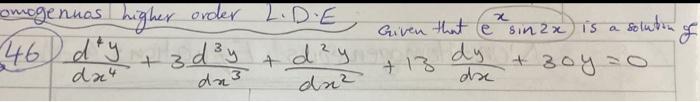 omogenuos higher order L.D.E Given that e^x sin2x is a solution of
46) d⁴y/dx⁴ + 3 d³y/dx³ + d²y/dx² + 13 dy/dx + 30y = 0